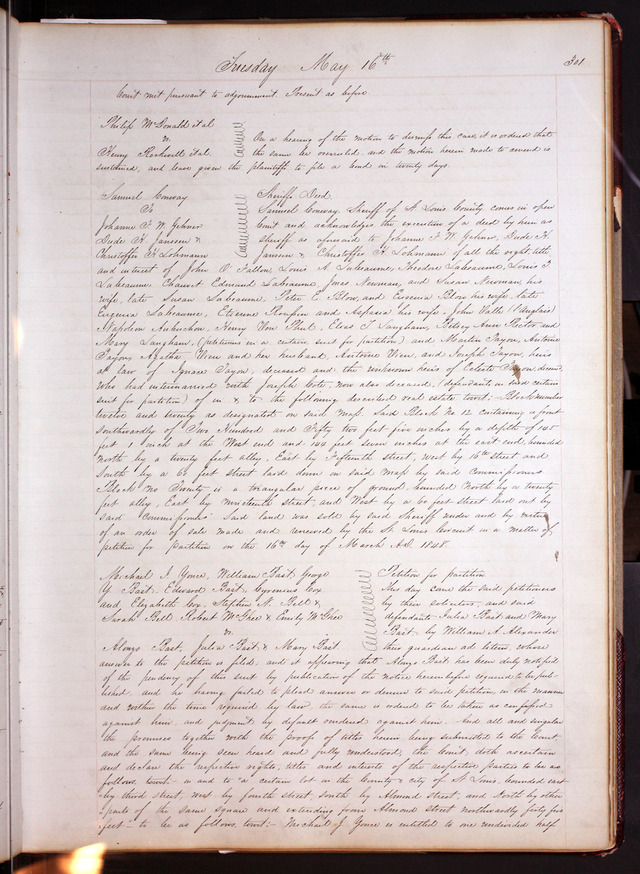 Tuesday May 16th 301
Court met pursuant to adjournment. Present as before
Philip McDonald et al
vs.
Henry Rockwell et al.
On a hearing of the motion to dismiss this case, it is ordered that
the same be overruled, and the motion herein made to amend is
sustained, and leave given the plaintiffs to file a bond in twenty days
Samuel Conway
To
Johanne F. W. Gehner
Dude H Janssen &
Christoffer H Lohmann
Sheriffs Deed
Samuel Conway, Sheriff of St Louis County comes in open
Court and acknowledges the execution of a deed by him as
Sheriff as aforesaid to Johanne F. W. Gehner, Dude H
Janssen & Christoffer H. Lohmann of all the right, title
and interest of John O'Fallon, Louis A Labeaume, Theodore Labeaume, Louis T
Labeaume, Chauvet Edmund Labeaume, Jonas Newman, and Susan Newman, his
wife, late Susan Labeaume, Peter E. Blow, and Eugenia Blow his wife, late
Eugenia Labeaume, Etienne and Aspasia his wife, John Valle
Napoleon Aubuchon, Henry Von Phul, Elias T Langham, Betsey Ann Rector and
Mary Langham, (petitioners in a certain suit for partition) and Martin Tayon, Antoine
Tayon, Agatha Uien and her husband, Antoine Uien, and Joseph Tayon, heirs
at law of Ignace Tayon, deceased and the unknown heirs of Celeste Tayon, decsd.
who had intermarried with Joseph Cote, now also deceased, (defendants in said certain
suit for partition) of in & to the following described real estate towit. Block number
twelve and twenty as designated on said map. Said Block No 12 containing a front
southwardly of Two Hundred and Fifty two feet five inches by a depth of 145
feet 1 inch at the West end and 144 feet seven inches at the east end, bounded
North by a twenty feet alley, East by Fifteenth street, West by 16th Street and
South by a 60 feet street laid down on said map by said Commissioners
Block No Twenty is a triangular piece of ground bounded North by a twenty
feet alley, East by nineteenth street, and West by a 60 feet street laid out by
said Commissioners. Said land was sold by said Sheriff under and by virtue
of an order of sale made and renewed by the St. Louis Circuit in a matter of
petition for partition on the 16th day of March A.D. 1848.
Michael J. Yonce, William Bait, George
Y. Bait, Edward Bait, Cox
and Elizabeth Cox, Stephen N. Bell &
Sarah Bell, Robert McGhee & Emily McGhee
vs.
Alonzo Bait, Julia Bait, & Mary Bait.
Petition for partition
This day come the said petitioners
by their solicitors, and said
defendants Julia Bait and Mary
Bait by William A. Alexander
their guardian ad litem, whose
answer to the petition is filed, and it appearing that Alonzo Bait has been duly notified
of the pendency of this suit by publication of the notice hereinbefore required to be pub-
lished, and he having failed to plead answer or demur to said petition, in the manner
and within the time required by law, the same is ordered to be taken as confessed
against him and judgment by default rendered against him. And all and singular
the premises together with the proofs of title herein being submitted to the Court
and the same being seen heard and fully understood, the Court doth ascertain
and declare the respective rights, titles and interests of the respective parties to be as
follows, towit:- in and to a certain lot in the County & city of St Louis, bounded east
by third street, west by fourth street, south by Almond street, and North by other
parts of the same square and extending from Almond street northwardly forty five
feet - to be as follows, towit:- Michael J. Yonce is entitled to one undivided half